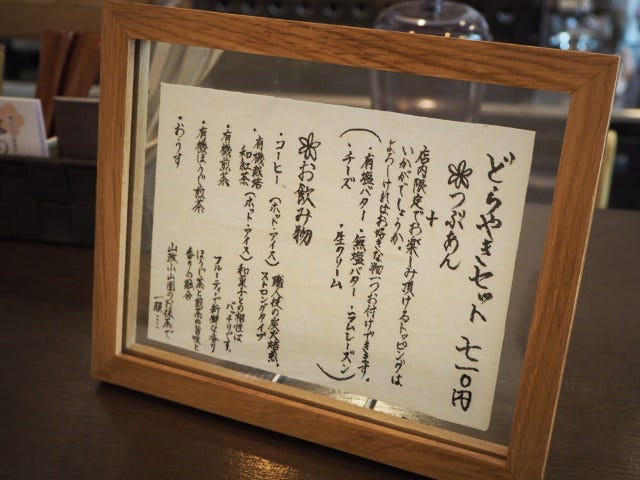 どらやきセット 七一〇円
つぶあん
+
店内限定でお楽しみ頂けるトッピングは
いかがでしょうか。
よろしければお好きな物一つお付けできます。
・有塩バター ・無塩バター ・ラムレーズン
・チーズ ・生クリーム
お飲み物
・コーヒー (ホット・アイス) 職人技の炭火焙煎。
ストロングタイプ
・有機栽培
和紅茶 (ホット・アイス) 和菓子との相性は
バッチリです。
・有機煎茶 フルーティーで新鮮な香り
・有機ほうじ煎茶 ほうじ茶と煎茶の旨味と
香りの融合
・おうす 山政小山園のお抹茶で
一服